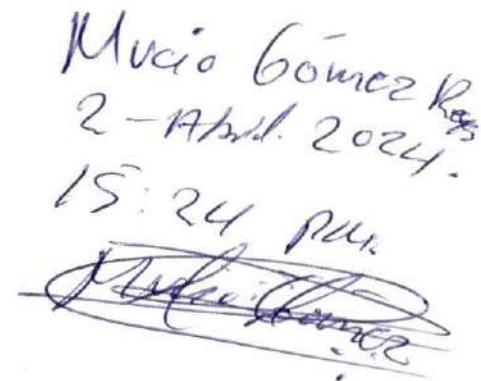 Mucio Gómez Reys
2-Abril. 2024.
15:24 pm.
Mucio Gomez